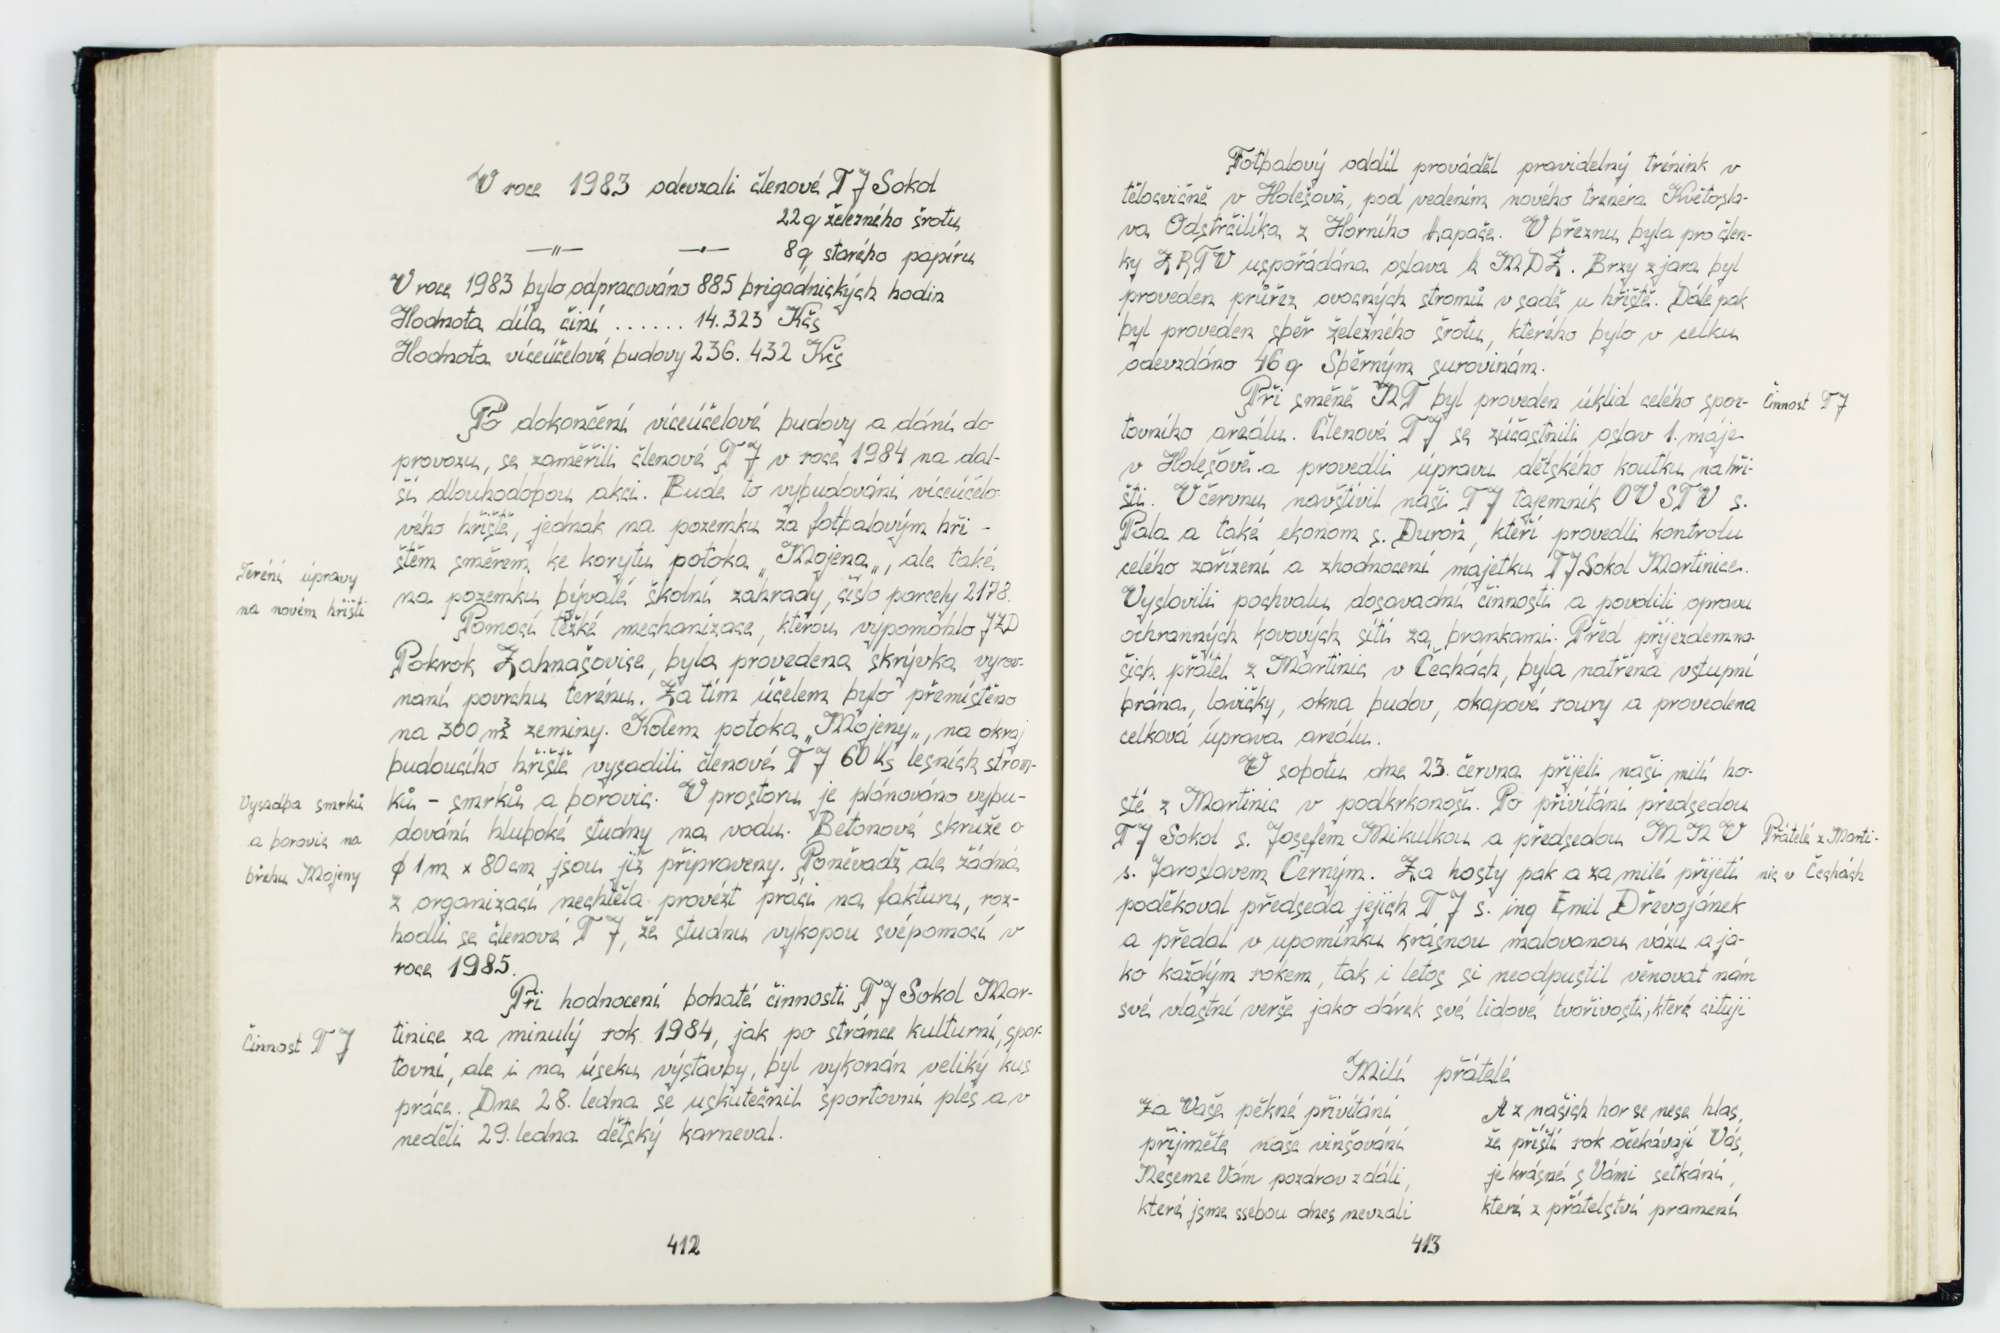 V roce 1983 odevzali členové TJ Sokol
22 q železného šrotu
—"— —"— 8 q starého papíru
V roce 1983 bylo odpracováno 885 brigádnických hodin
Hodnota díla činí ...... 14.323 Kčs
Hodnota víceúčelové budovy 236.432 Kčs
Po dokončení víceúčelové budovy a dání do
provozu, se zaměřili členové TJ v roce 1984 na dal-
ší dlouhodobou akci. Bude to vybudování víceúčelo-
vého hřiště, jednak na pozemku za fotbalovým hři-
štěm směrem ke korytu potoka „Mojena„, ale také
na pozemku bývalé školní zahrady, číslo parcely 2178.
Teréní úpravy
na novém hřišti
Pomocí těžké mechanizace, kterou vypomohlo JZD
Pokrok Zahnašovice, byla provedena skrývka vyrov-
naní povrchu terénu. Za tím účelem bylo přemístěno
na 300 m3 zeminy. Kolem potoka „Mojeny„, na okraj
budoucího hřiště vysadili členové TJ 60 ks lesních strom-
ků – smrků a borovic. V prostoru je plánováno vybu-
dování hluboké studny na vodu. Betonové skruže o
φ 1 m x 80 cm jsou již připraveny. Poněvadž ale žádná
z organizací nechtěla provézt práci na fakturu, roz-
hodli se členové TJ, že studnu vykopou svépomocí v
roce 1985.
Vysadba smrků
a borovic na
břehu Mojeny
Při hodnocení bohaté činnosti TJ Sokol Mar-
tinice za minulý rok 1984, jak po stránce kulturní, spor-
tovní, ale i na úseku výstavby, byl vykonán veliký kus
práce. Dne 28. ledna se uskutečnil sportovní ples a v
neděli 29. ledna dětský karneval.
Činnost TJ
412
Fotbalový oddíl prováděl pravidelný trénink v
tělocvičně v Holešově, pod vedením nového trenéra Květosla-
va Odstrčilíka z Horního Lapače. V březnu byla pro člen-
ky ZRTV uspořádána oslava k MDŽ. Brzy z jara byl
proveden průřez ovocných stromů v sadě u hřiště. Dále pak
byl proveden sběr železného šrotu, kterého bylo v celku
odevzdáno 46 q Sběrným surovinám.
Při směně NT byl proveden úklid celého spor-
tovního areálu. Členové TJ se zúčastnili oslav 1. máje
v Holešově a provedli úpravu dětského koutku na hři-
šti. V červnu navštívil naši TJ tajemník OV STV s.
Pala a také ekonom s. Duroň, kteří provedli kontrolu
celého zařízení a zhodnocení majetku TJ Sokol Martinice.
Vyslovili pochvalu dosavadní činnosti a povolili opravu
ochranných kovových sítí za brankami. Před příjezdem na-
šich přátel z Martinic v Čechách, byla natřena vstupní
brána, lavičky, okna budov, okapové roury a provedena
celková úprava areálu.
Činnost TJ
V sobotu dne 23. června přijeli naši milí ho-
sté z Martinic v podkrkonoší. Po přivítání předsedou
TJ Sokol s. Josefem Mikulkou a předsedou MNV
s. Jaroslavem Černým. Za hosty pak a za milé přijetí
poděkoval předseda jejich TJ s. ing Emil Dřevojánek
a předal v upomínku krásnou malovanou vázu a ja-
ko každým rokem, tak i letos si neodpustil věnovat nám
své vlastní verše jako dárek své lidové tvořivosti, které cituji
Přátelé z Marti-
nic v Čechách
Milí přátelé
Za Vaše pěkné přivítání
příjměte naše vinšování
Neseme Vám pozdrav z dáli,
které jsme ssebou dnes nevzali
A z našich hor se nese hlas,
že příští rok očekávají Vás,
je krásné s Vámi setkání,
které z přátelství pramení
413